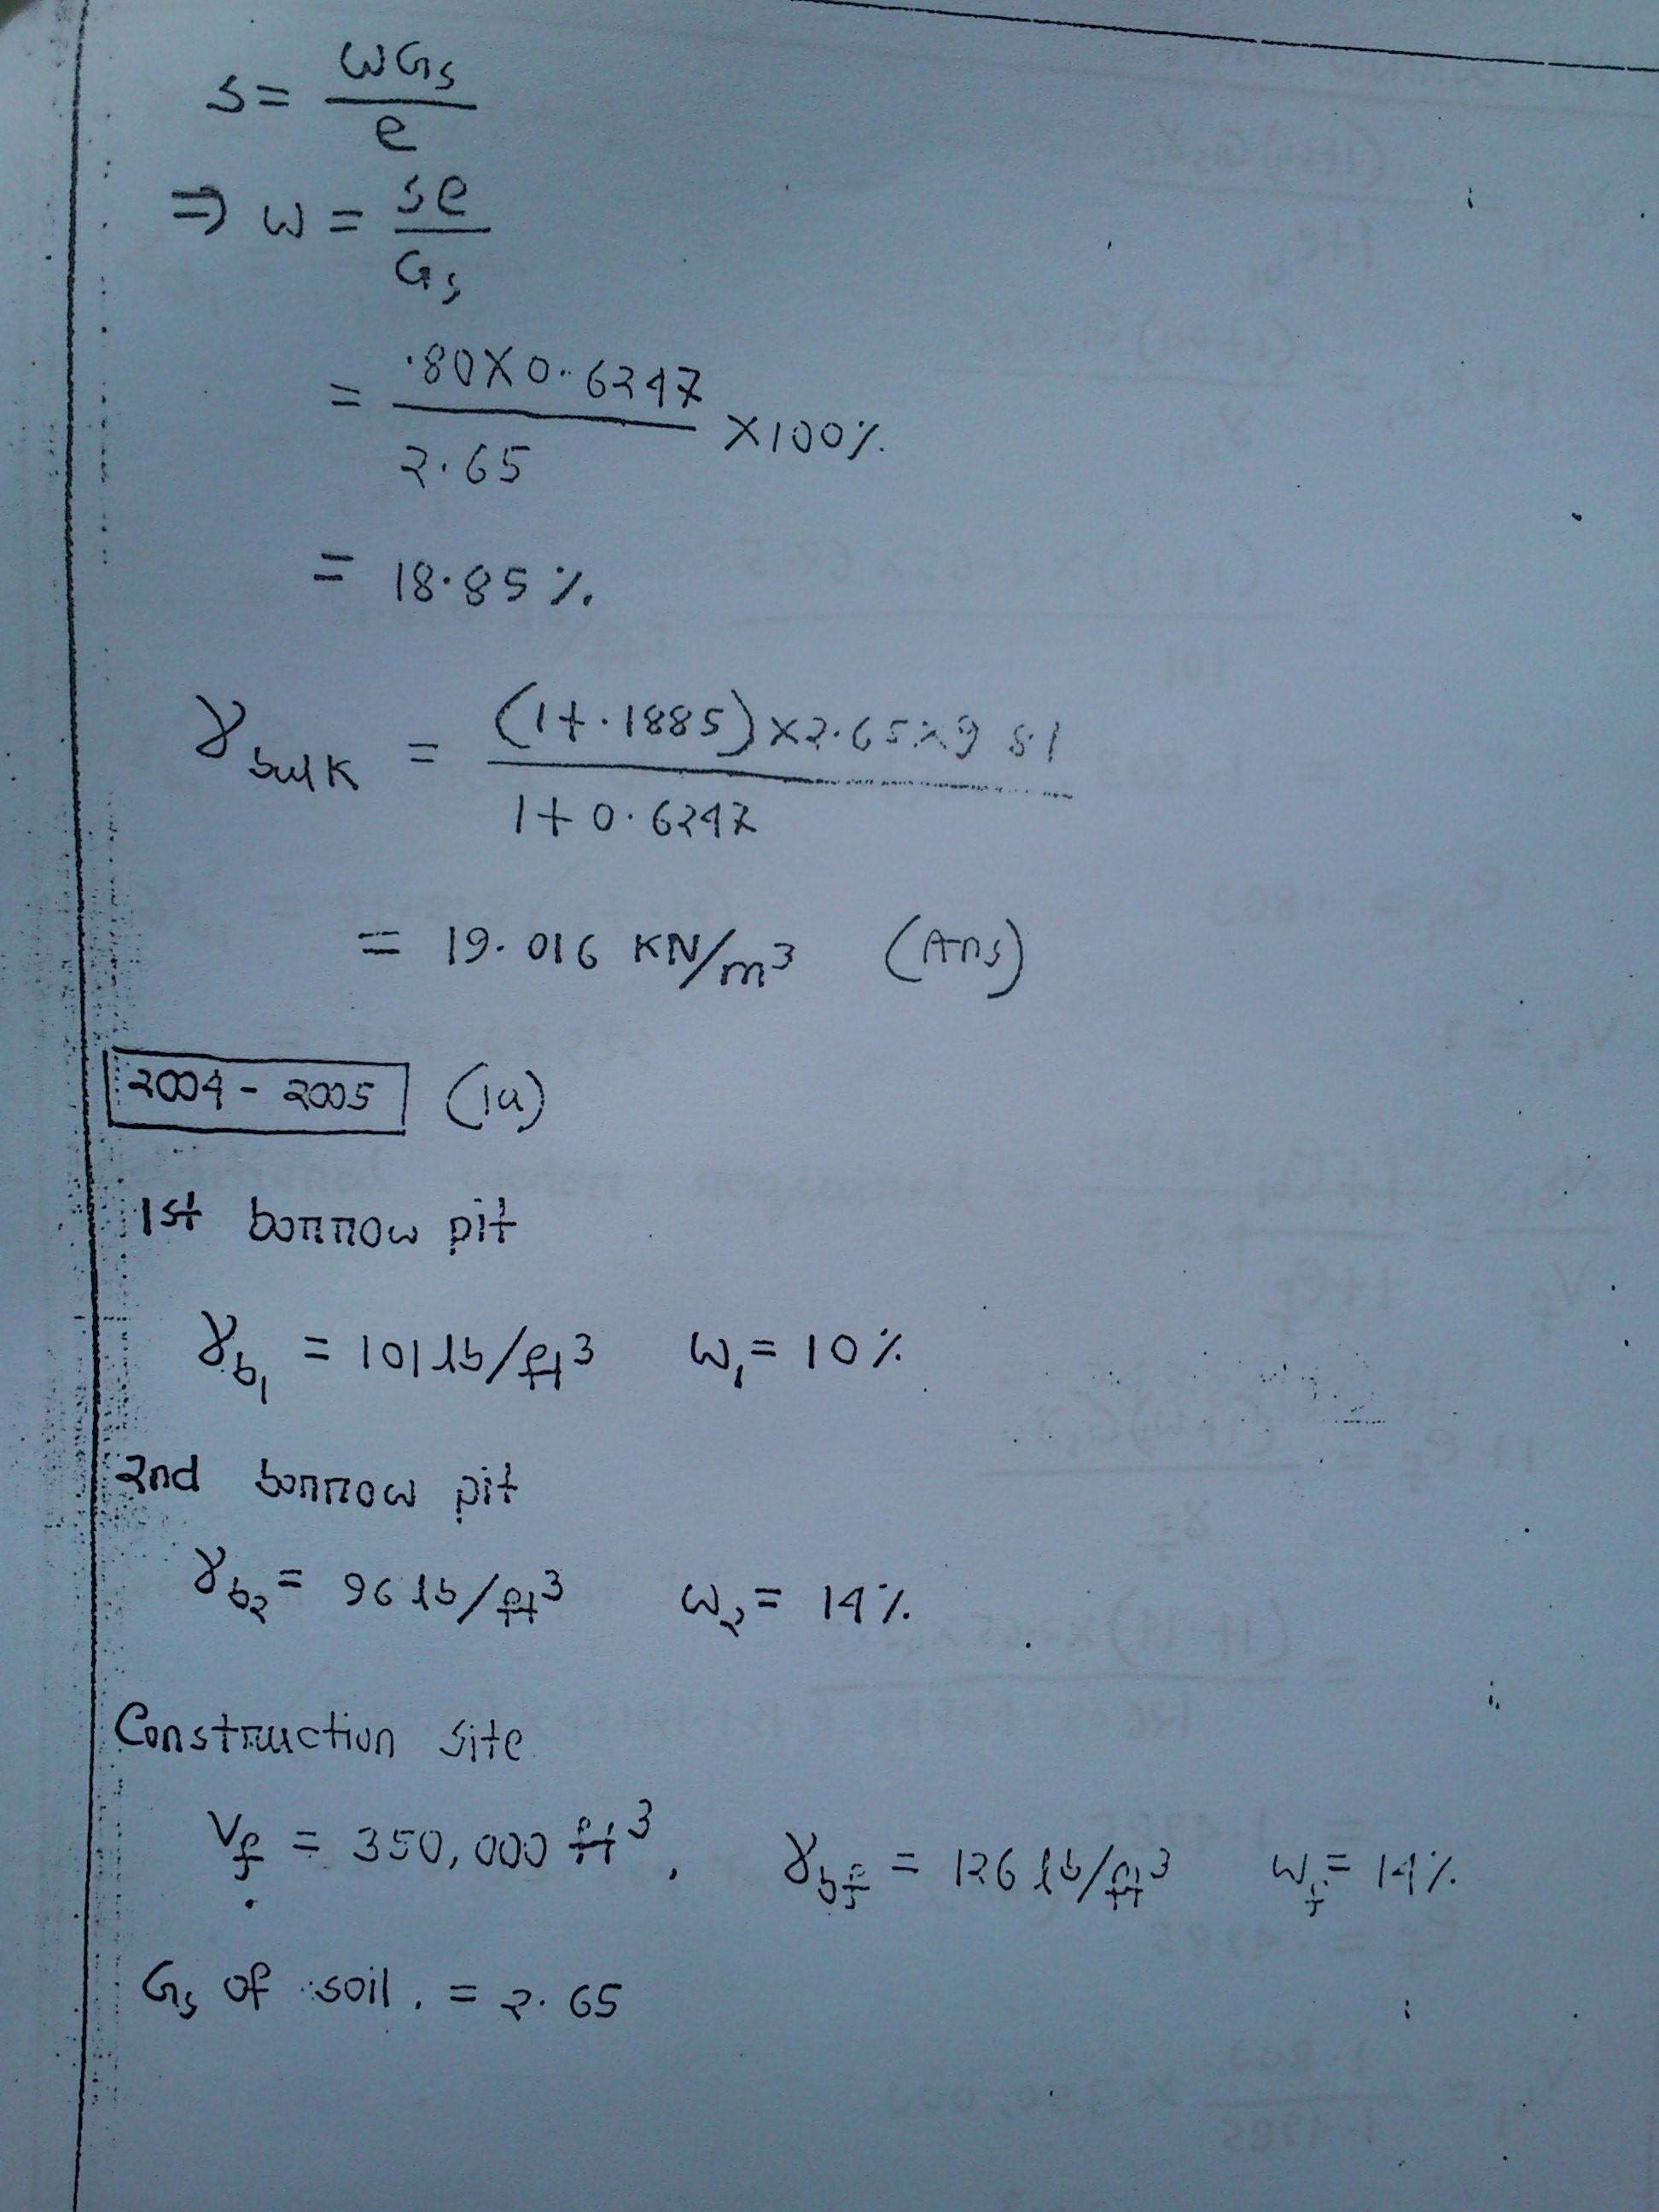 S = wGs / e
⇒ w = se / Gs
= .80×0.6247 / 2.65 ×100%
= 18.85%
γbulk = (1+.1885)×2.65×9.81 / 1+0.6247
= 19.016 KN/m³ (Ans)
2004 - 2005 (1a)
1st borrow pit
γb1 = 101 lb/ft³ w1 = 10%
2nd borrow pit
γb2 = 96 lb/ft³ w2 = 14%
Construction site
Vf = 350,000 ft³, γbf = 126 lb/ft³ wf = 14%
Gs of soil. = 2.65